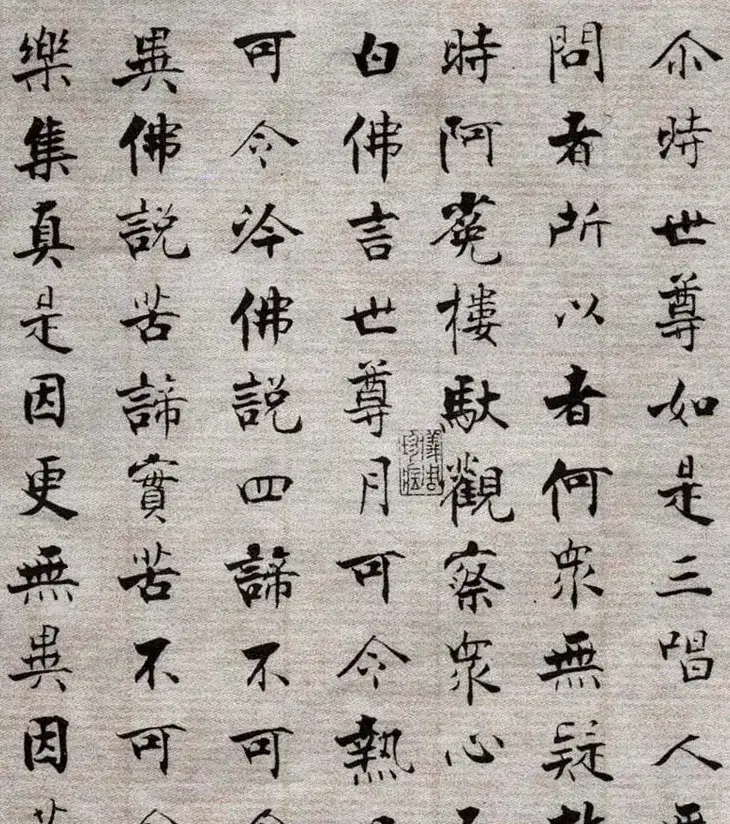 尒時世尊如是三唱人
問者所以者何衆無疑
時阿菟樓馱觀察衆心
白佛言世尊月可令熱
可令冷佛說四諦不可
異佛說苦諦實苦不可
樂集真是因更無異因